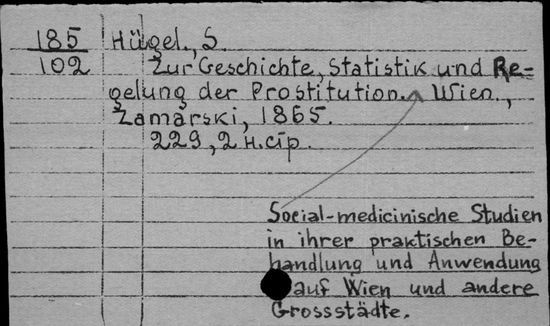 185 Hügel., S.
102 Zur Geschichte, Statistik und Re-
gelung der Prostitution. Wien.,
Zamarski, 1865.
229, 2 н. стр.
Social-medicinische Studien
in ihrer praktischen Be-
handlung und Anwendung
auf Wien und andere
Grossstädte.